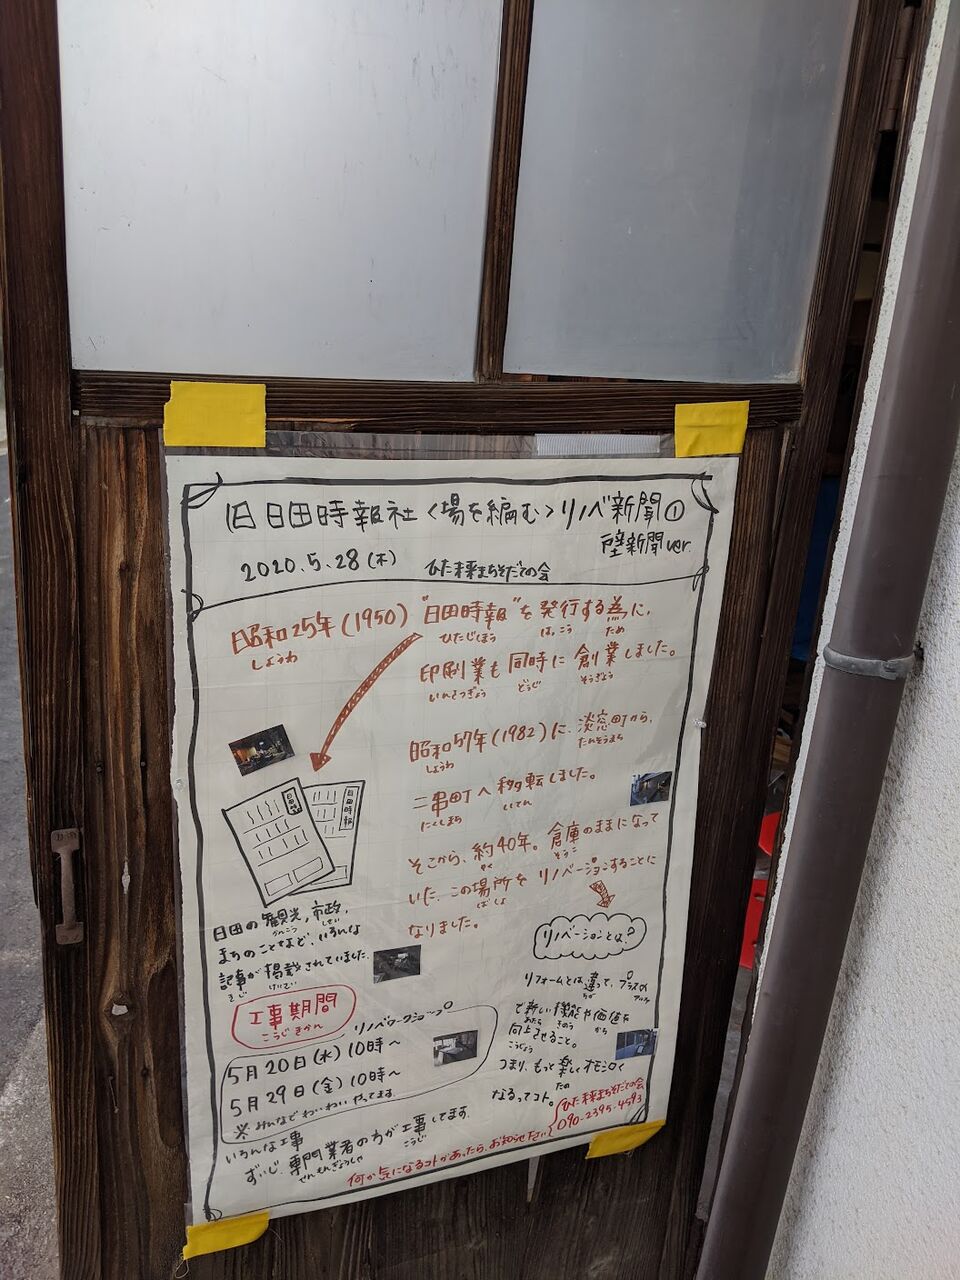 旧日田時報社〈場を編む〉リノベ新聞①
壁新聞ver.
2020.5.28(木) ひた未来まちそだての会
昭和25年(1950)"日田時報"を発行する為に、
しょうわ ひたじほう はっこう ため
印刷業も同時に創業しました。
いんさつぎょう どうじ そうぎょう
昭和57年(1982)に、淡窓町から、
しょうわ たんそうまち
二串町へ移転しました。
にくしまち いてん
そこから、約40年。倉庫のままになって
やく そうこ
いた、この場所を リノベーションすることに
ばしょ
なりました。
日田時報
日田時報
日田の観光、市政、
かんこう しせい
まちのことなど、いろんな
記事が掲載されていました。
きじ けいさい
リノベーションとは?
リフォームとは違って、プラスα
ちが アルファ
で新しい機能や価値を
あたら きのう かち
向上させること。
こうじょう
つまり、もっと楽しくオモシロく
たの
なるってコト。
工事期間
こうじきかん
リノベワークショップ
5月20日(水)10時〜
5月29日(金)10時〜
※みんなでわいわいやってます。
いろんな工事
ずいじ、専門業者の方が工事してます。
せんもんぎょうしゃ こうじ
何か気になるコトがあったら、お知らせ下さい
ひた未来まちそだての会
090-2395-4593